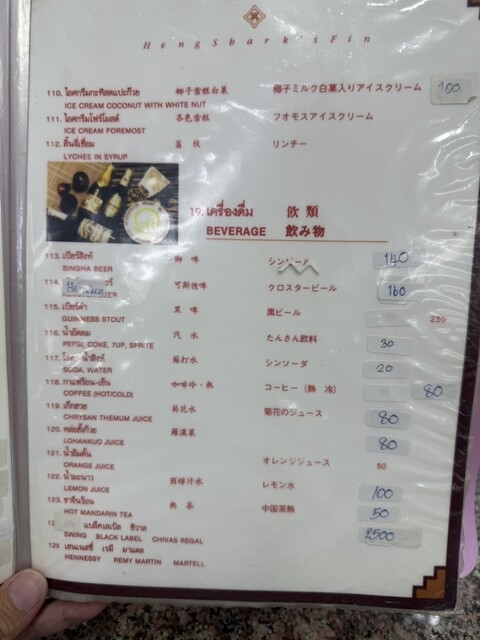 HengShark'sFin
110. ไอศกรีมกะทิสดแปะก๊วย 椰子雪糕白菓 椰子ミルク白菓入りアイスクリーム 100
ICE CREAM COCONUT WITH WHITE NUT
111. ไอศกรีมโฟร์โมสต์ 各色雪糕 フオモスアイスクリーム
ICE CREAM FOREMOST
112. ลิ้นจี่เชื่อม 荔 枝 リンチー
LYCHEE IN SYRUP
19. เครื่องดื่ม 飲 類
BEVERAGE 飲み物
113. เบียร์สิงห์ 獅 啤 140
SINGHA BEER
114. 可斯德啤 クロスタービール 160
BEER
115. เบียร์ดำ 黑 啤 黒ビール 250
GUINNESS STOUT
116. น้ำอัดลม 汽 水 たんさん飲料 30
PEPSI, COKE, 7UP, SPRITE
117. โซดา น้ำสิงห์ 蘇打水 シンソーダ 20
SODA, WATER
118. กาแฟร้อน-เย็น 咖啡冷、熱 コーヒー (熱 冷) 80
COFFEE (HOT/COLD)
119. เก๊กฮวย 菊花水 菊花のジュース 80
CHRYSAN THEMUM JUICE
120. หล่อฮั้งก้วย 羅漢菓 80
LOHANKUO JUICE
121. น้ำส้มคั้น オレンジジュース 50
ORANGE JUICE
122. น้ำมะนาว 酉檸汁水 レモン水 100
LEMON JUICE
123. ชาจีนร้อน 熱 茶 中国茶熱 50
HOT MANDARIN TEA
แบล็คเลเบิล ชีวาส 2500
SWING BLACK LABEL CHIVAS REGAL
125 เฮนเนสซี่ เรมี่ มาแตล
HENNESSY REMY MARTIN MARTELL